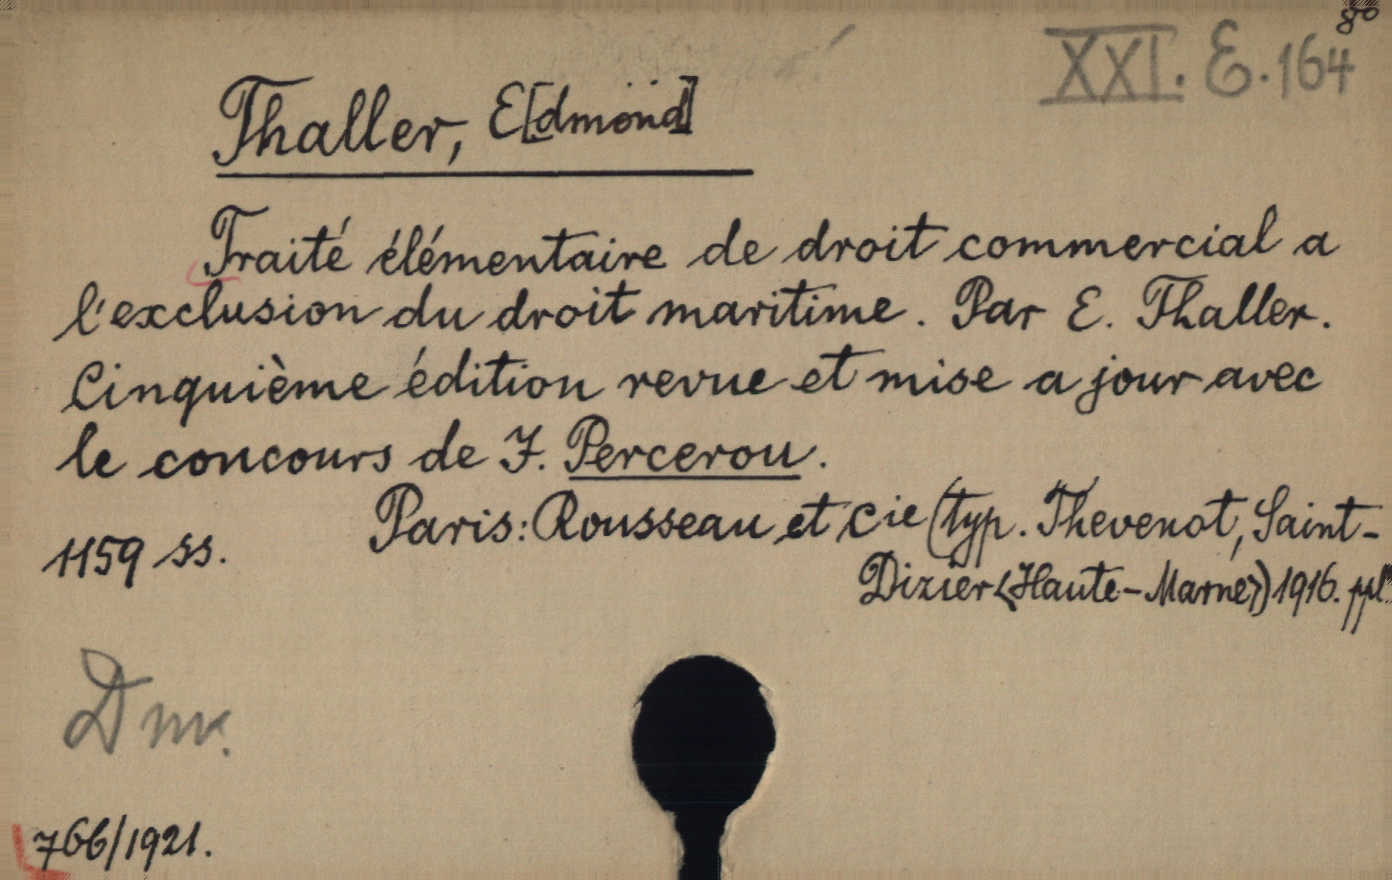 8°
XXI. E. 164
Thaller, E[dmond]
Traité élémentaire de droit commercial a
l'exclusion du droit maritime. Par E. Thaller.
Cinquième édition revue et mise a jour avec
le concours de J. Percerou.
Paris: Rousseau et Cie (typ. Thevenot, Saint-
1159 ss.
Dizier <Haute-Marne>) 1916. ppl.
D nv.
766/1921.